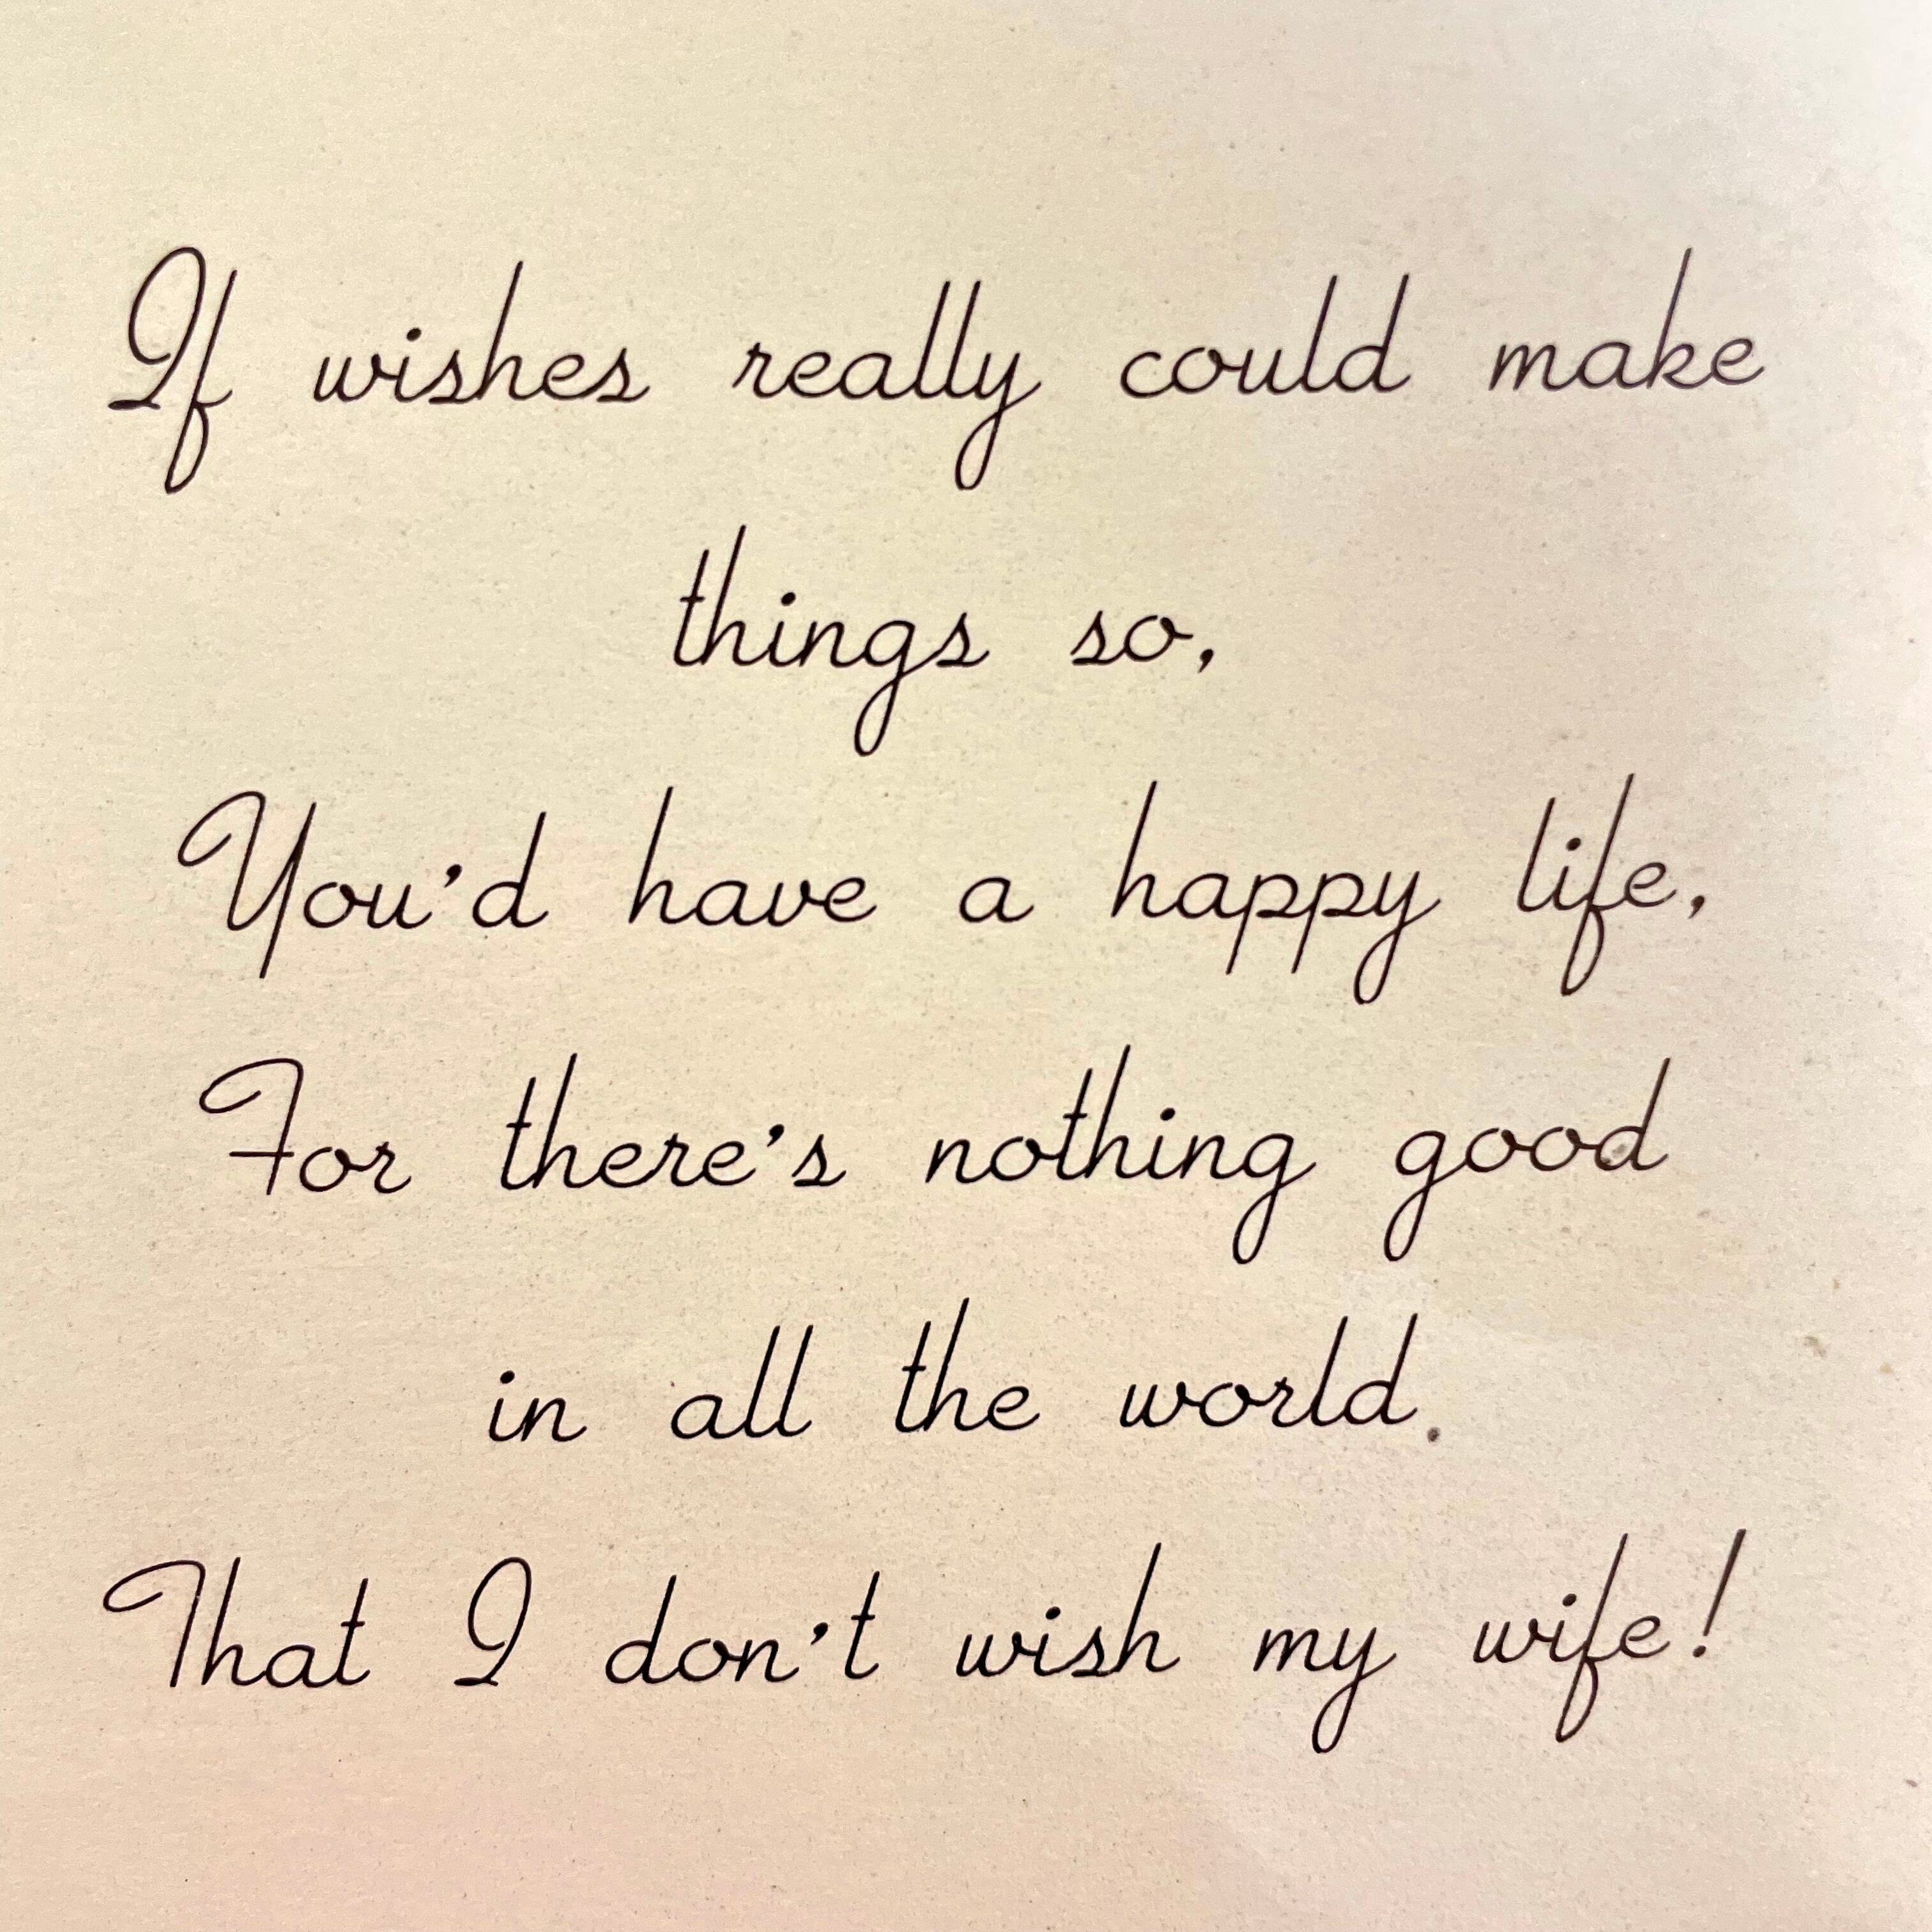 If wishes really could make
things so,
You'd have a happy life,
For there's nothing good
in all the world.
That I don't wish my wife!